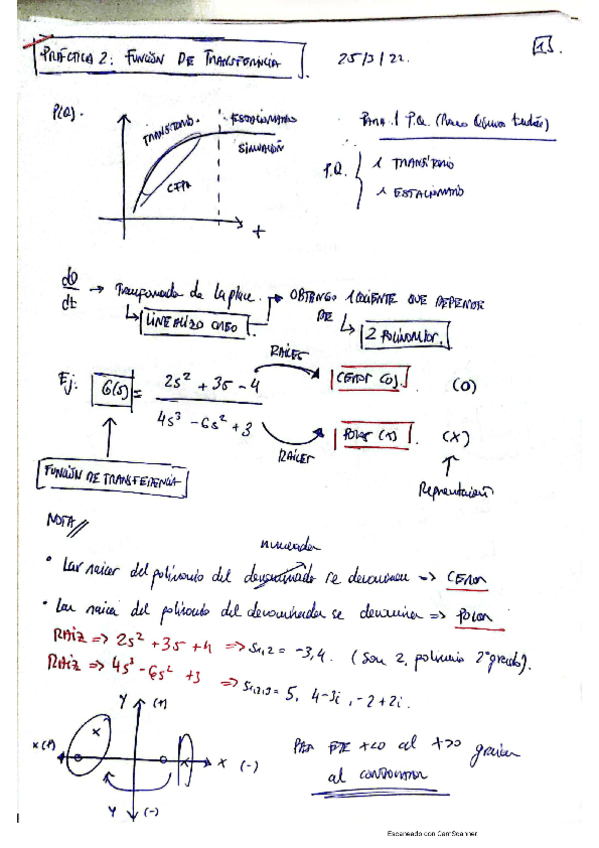 PRÁCTICA 2: FUNCIÓN DE TRANSFERENCIA
25/3/22.
1.
P(Q).
TRANSITORIO.
ESTACIONARIO
SIMULACIÓN
t
PARA 1 P.Q.
P.Q. { 1 TRANSITORIO
1 ESTACIONARIO
dQ/dt → Transformada de Laplace. → OBTENGO 1 COCIENTE QUE DEPENDE
DE
LINEALIZO
2 POLINOMIOS.
Ej: G(s) = (2s² + 3s - 4)/(4s³ - 6s² + 3)
RAÍCES
CEROS (0).
(0)
RAÍCES
POLOS (x).
(X)
FUNCIÓN DE TRANSFERENCIA
Representación
NOTA
numerador
• Las raíces del polinomio del denominador se denominan => CEROS
• Las raíces del polinomio del denominador se denominan => POLOS
RAÍZ => 2s² + 3s + 4 => s₁,₂ = -3, 4. (Son 2, polinomio 2º grado).
RAÍZ => 4s³ - 6s² + 3 => s₁,₂,₃ = 5, 4-3i, -2+2i.
Y (+)
X (+)
X (-)
Y (-)
x<0 al x>0 gracias
al controlador
Escaneado con CamScanner